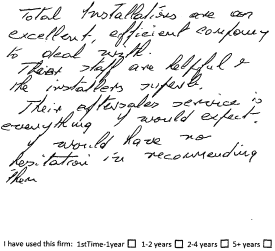 Total Installations are an
excellent, efficient company
to deal with.
Their staff are helpful &
the installers superb.
Their aftersales service is
everything I would expect.
I would have no
hesitation in recommending
them
I have used this firm: 1stTime-1year ☐ 1-2 years ☐ 2-4 years ☐ 5+ years ☐